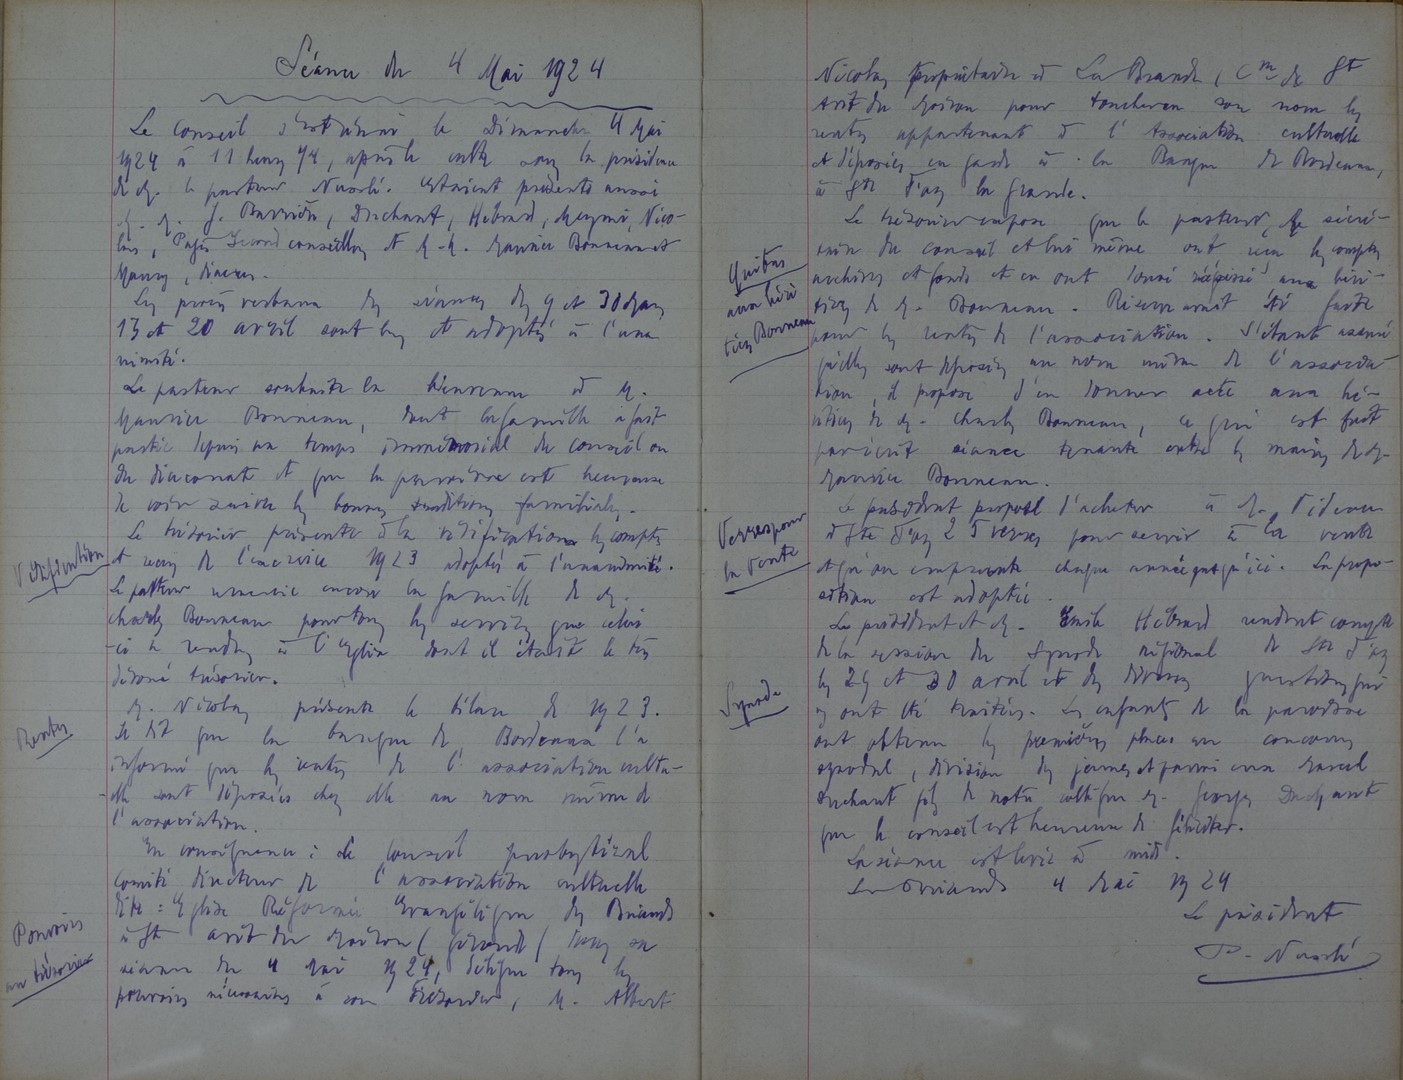 Séance du 4 Mai 1924
Le Conseil s'est réuni le Dimanche 4 Mai
1924 à 11 heures 1/4, après le culte sous la présidence
de M. le pasteur Nuorté. Etaient présents aussi
M. M. J. Barrière, Duchant, Hébrard, Meymé, Nico-
las, Pagès Second conseillers et M. M. Maurice Bonneau et
Maury, diacres.
Les procès verbaux des séances des 9 et 30 Mars
13 et 20 avril sont lus et adoptés à l'una
nimité.
Le pasteur souhaite la bienvenue à M.
Maurice Bonneau, dont la famille a fait
partie depuis un temps immémorial du conseil ou
du diaconat et que la paroisse est heureuse
de voir suivre les bonnes traditions familiales.
Vérification
Le trésorier présente à la vérification les comptes
et reçus de l'exercice 1923 adoptés à l'unanimité.
Le pasteur remercie encore la famille de M.
Charles Bonneau pour tous les services que celui
-ci a rendus à l'Eglise dont il était le très
dévoué trésorier.
Rentes
M. Nicolas présente le bilan de 1923.
Il dit que la banque de Bordeaux l'a
informé que les rentes de l'association cultu-
-elle sont déposées chez elle au nom même de
l'association.
Pouvoirs
au trésorier
En conséquence : Le Conseil presbytéral
comité directeur de l'association cultuelle
dite : Eglise Réformée Evangélique des Briands
à St Avit du Moiron (Gironde) dans sa
séance du 4 Mai 1924, délègue tous les
pouvoirs nécessaires à son trésorier, M. Albert
Nicolas propriétaire à La Brande, Cne de St
Avit du Moiron pour toucher en son nom les
rentes appartenant à l'Association cultuelle
et déposées en garde à la Banque de Bordeaux,
à Ste Foy la Grande.
Quitus
aux héri
tiers Bonneau
Le trésorier expose que le pasteur, le secré-
taire du conseil et lui même ont reçu les comptes
archives et fonds et en ont donné récépissé aux héri-
tiers de M. Bonneau. Réserve avait été faite
pour les rentes de l'association. S'étant assuré
qu'elles sont déposées au nom même de l'associa-
tion, il propose d'en donner acte aux hé-
ritiers de M. Charles Bonneau, ce qui est fait
par écrit séance tenante entre les mains de M.
Maurice Bonneau.
Verres pour
la Vente
Le président propose d'acheter à M. Videau
à Ste Foy 25 verres pour servir à la vente
et qu'on emprunte chaque année jusqu'ici. La propo-
sition est adoptée.
Synode
Le président et M. Emile Hébrard rendent compte
de la session du Synode régional de Ste Foy
les 29 et 30 avril et des diverses questions qui
y ont été traitées. Les enfants de la paroisse
ont obtenu les premières places au concours
synodal, division des jeunes et parmi eux Marcel
Duchant fils de notre collègue M. Georges Duchant
que le conseil est heureux de féliciter.
La séance est levée à midi.
Les Briands 4 Mai 1924
Le président